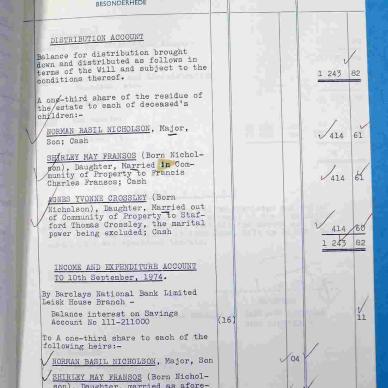 BESONDERHEDE
DISTRIBUTION ACCOUNT
Balance for distribution brought
down and distributed as follows in
terms of the Will and subject to the
conditions thereof. 1 243 82
A one-third share of the residue of
the estate to each of deceased's
children:-
NORMAN BASIL NICHOLSON, Major,
Son; Cash 414 61
SHIRLEY MAY FRANSOS (Born Nichol-
son), Daughter, Married in Com-
munity of Property to Francis
Charles Fransos; Cash 414 61
AGNES YVONNE CROSSLEY (Born
Nicholson), Daughter, Married out
of Community of Property to Staf-
ford Thomas Crossley, the marital
power being excluded; Cash 414 60
1 243 82
INCOME AND EXPENDITURE ACCOUNT
TO 10th September, 1974.
By Barclays National Bank Limited
Leisk House Branch -
Balance interest on Savings
Account No 111-211000 (16) 11
To A one-third share to each of the
following heirs:-
NORMAN BASIL NICHOLSON, Major, Son 04
SHIRLEY MAY FRANSOS (Born Nichol-
son), Daughter, married as afore-